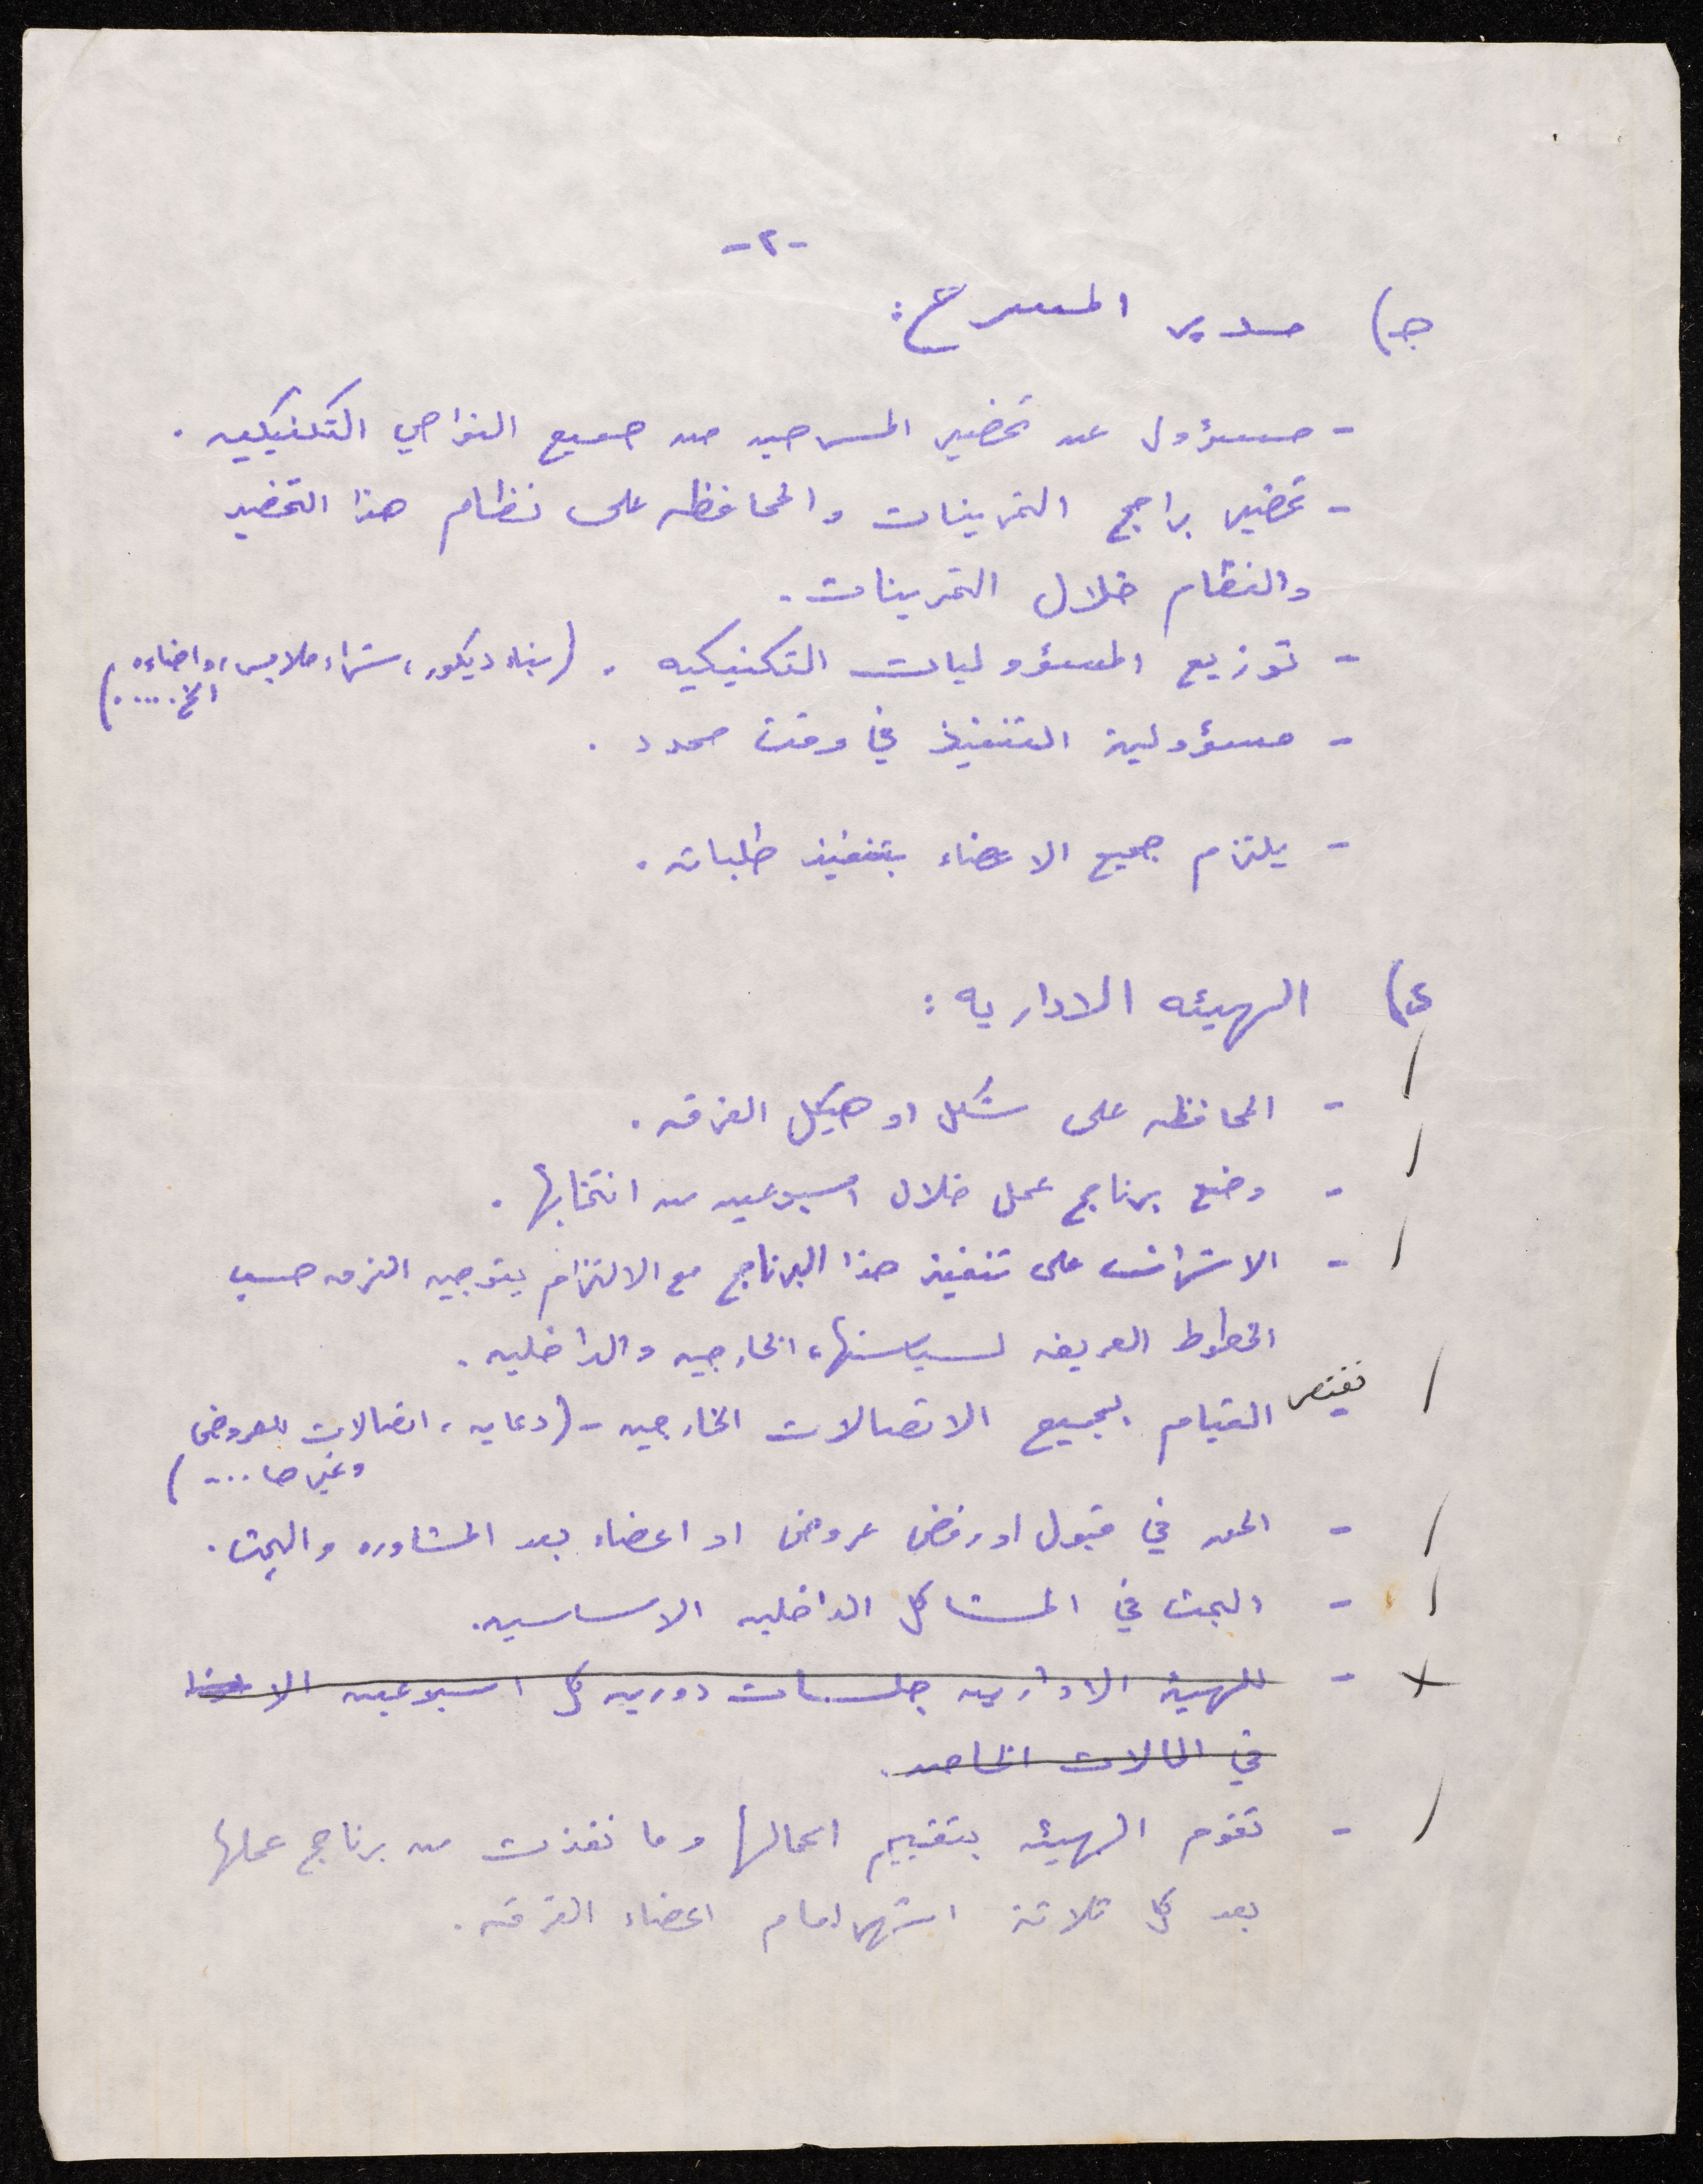 -٢-
جـ) مدير المسرح:
- مسؤول عن تحضير المسرحيه من جميع النواحي التكنيكيه.
- تحضير برامج التمرينات والمحافظه على نظام هذا التحضير
والنظام خلال التمرينات.
- توزيع المسؤوليات التكنيكيه. (بناء ديكور، شراء ملابس، واضاءه
الخ.....)
- مسؤولية التنفيذ في وقت محدد.
- يلتزم جميع الاعضاء بتنفيذ طلباته.
د) الهيئه الاداريه:
- المحافظه على شكل او هيكل الفرقه.
- وضع برنامج عمل خلال اسبوعين من انتخابها.
- الاشراف على تنفيذ هذا البرنامج مع الالتزام بتوجيه الفرقه حسب
الخطوط العريضه لسياستها، الخارجيه والداخليه.
القيام بجميع الاتصالات الخارجيه - (دعايه، اتصالات للعروض
وغيرها....)
- الحق في قبول او رفض عروض او اعضاء بعد المشاوره والبحث.
- البحث في المشاكل الداخليه الاساسيه.
- للهيئة الاداريه جلسات دوريه كل اسبوعين الا
في الحالات الخاصه.
- تقوم الهيئه بتقييم اعمالها وما نفذت من برنامج عملها
بعد كل ثلاثة اشهر امام اعضاء الفرقه.